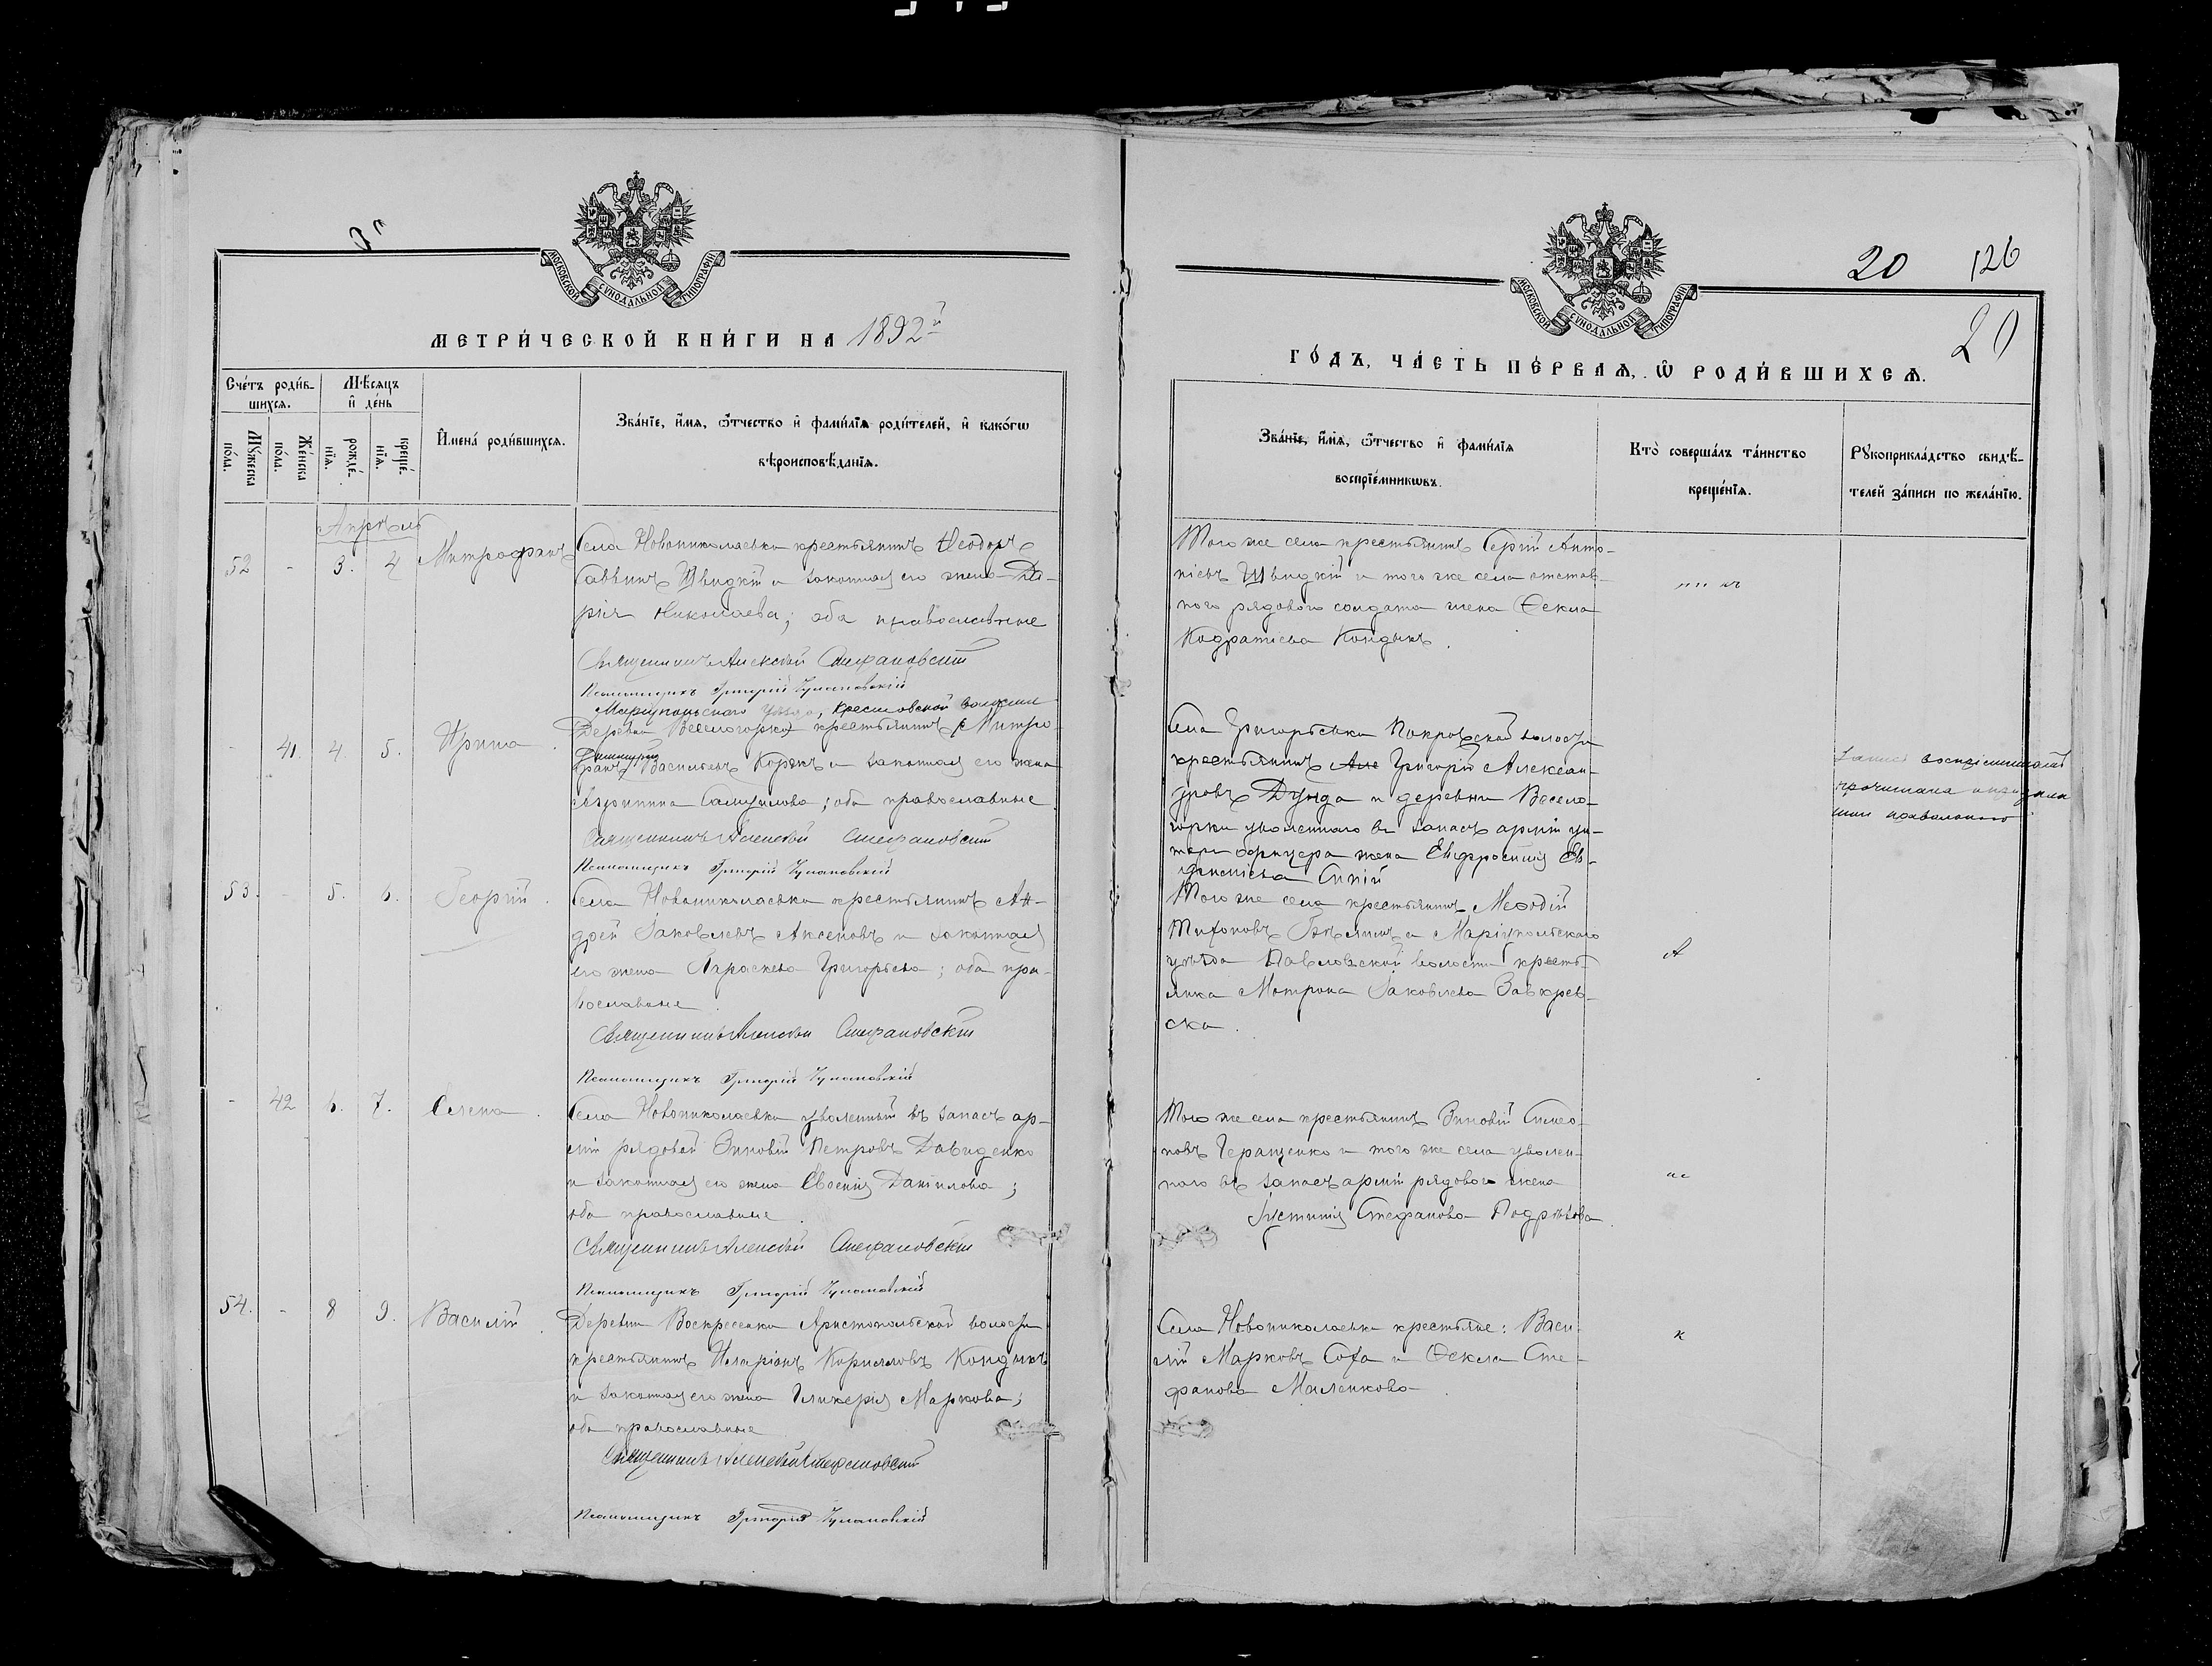 МОСКОВСКОЙ СѴНОДАЛЬНОЙ ТИПОГРАФІИ
МЕТРИ́ЧЕСКОЙ КНИ́ГИ НА 1892й
Сче́тъ роди́в-
шихся.
Мѣ́сяцъ
и҆ де́нь
Мꙋжеска
по́ла.
Же́нска
по́ла.
рожде́-
нїя.
креще́-
нїя.
И҆мена̀ роди́вшихся.
Зва́нїе, и҆́мя, ѻ҆́тчество и҆ фами́лїя роди́телей, и҆ како́гѡ
вѣроисповѣ́данїя.
Апрѣль
52 - 3. 4 Митрофанъ
Села Новониколаевки крестьянинъ Ѳеодоръ
Саввинъ Швидкій и законная его жена Да-
рія Николаева; оба православные
Священникъ Алексѣй Стефановскій
Псаломщикъ Григорій
Маріупольскаго уѣзда, Крестовской волости
- 41. 4 5. Ирина
Деревни Веселогорки крестьянинъ Митро-
Димитрій
фанъ Васильевъ и законная его жена
Самуилова; оба православные
Священникъ Алексѣй Стефановскій
Псаломщикъ Григорій
53. - 5. 6. Георгій.
Села Новониколаевки крестьянинъ Ан-
дрей Іаковлевъ Аксеновъ и законная
его жена Параскева Григорьева; оба пра-
вославные.
Священникъ Алексѣй Стефановскій
Псаломщикъ Григорій
- 42 6. 7. Елена.
Села Новониколаевки уволенный въ запасъ ар-
міи рядовой Зиновій Петровъ Давиденко
и законная его жена Евгенія Даніилова;
оба православные.
Священникъ Алексѣй Стефановскій
Псаломщикъ Григорій
54. - 8 9. Василій.
Деревни Воскресенки Аристопольской волости
крестьянинъ Иларіонъ Кирилловъ Кондыкъ
и законная его жена Гликерія Маркова;
оба православные
Священникъ Алексѣй Стефановскій
Псаломщикъ Григорій
МОСКОВСКОЙ СѴНОДАЛЬНОЙ ТИПОГРАФІИ
20 126
20
ГО́ДЪ, ЧА́СТЬ ПЕ́РВАЯ, Ѡ҆ РОДИ́ВШИХСЯ.
Зва́нїе, и҆́мя, ѻ҆́тчество и҆ фами́лїя
воспрїе́мникѡвъ.
Кто̀ соверша́лъ та́инство
креще́нїя.
Рꙋкоприкла́дство свидѣ́-
телей за́писи по жела́нїю.
Того же села крестьянинъ Сергій Анто-
ніевъ Швидкій и того же села отстав-
ного рядового солдата жена Ѳекла
Кодратіева Кондыкъ.
Села Григорьевки Покровской волости
крестьянинъ Але Григорій Алексан-
дровъ Дунда и деревни Весело-
горки уволеннаго въ запасъ арміи ун-
теръ офицера жена Евфросинія Ев-
фиміева Синій
прочитана
Того же села крестьянинъ Меѳодій
Тихоновъ и Маріупольскаго
уѣзда Павловской волости кресть-
янка Матрона Іаковлева Завкрев-
ска.
Того же села крестьянинъ Зиновій Симео-
новъ Геращенко и того же села уволен-
ного въ запасъ арміи рядового жена
Іустинія Стефанова
Села Новониколаевки крестьяне: Васи-
лій Марковъ Соха и Ѳекла Сте-
фанова Миленкова.